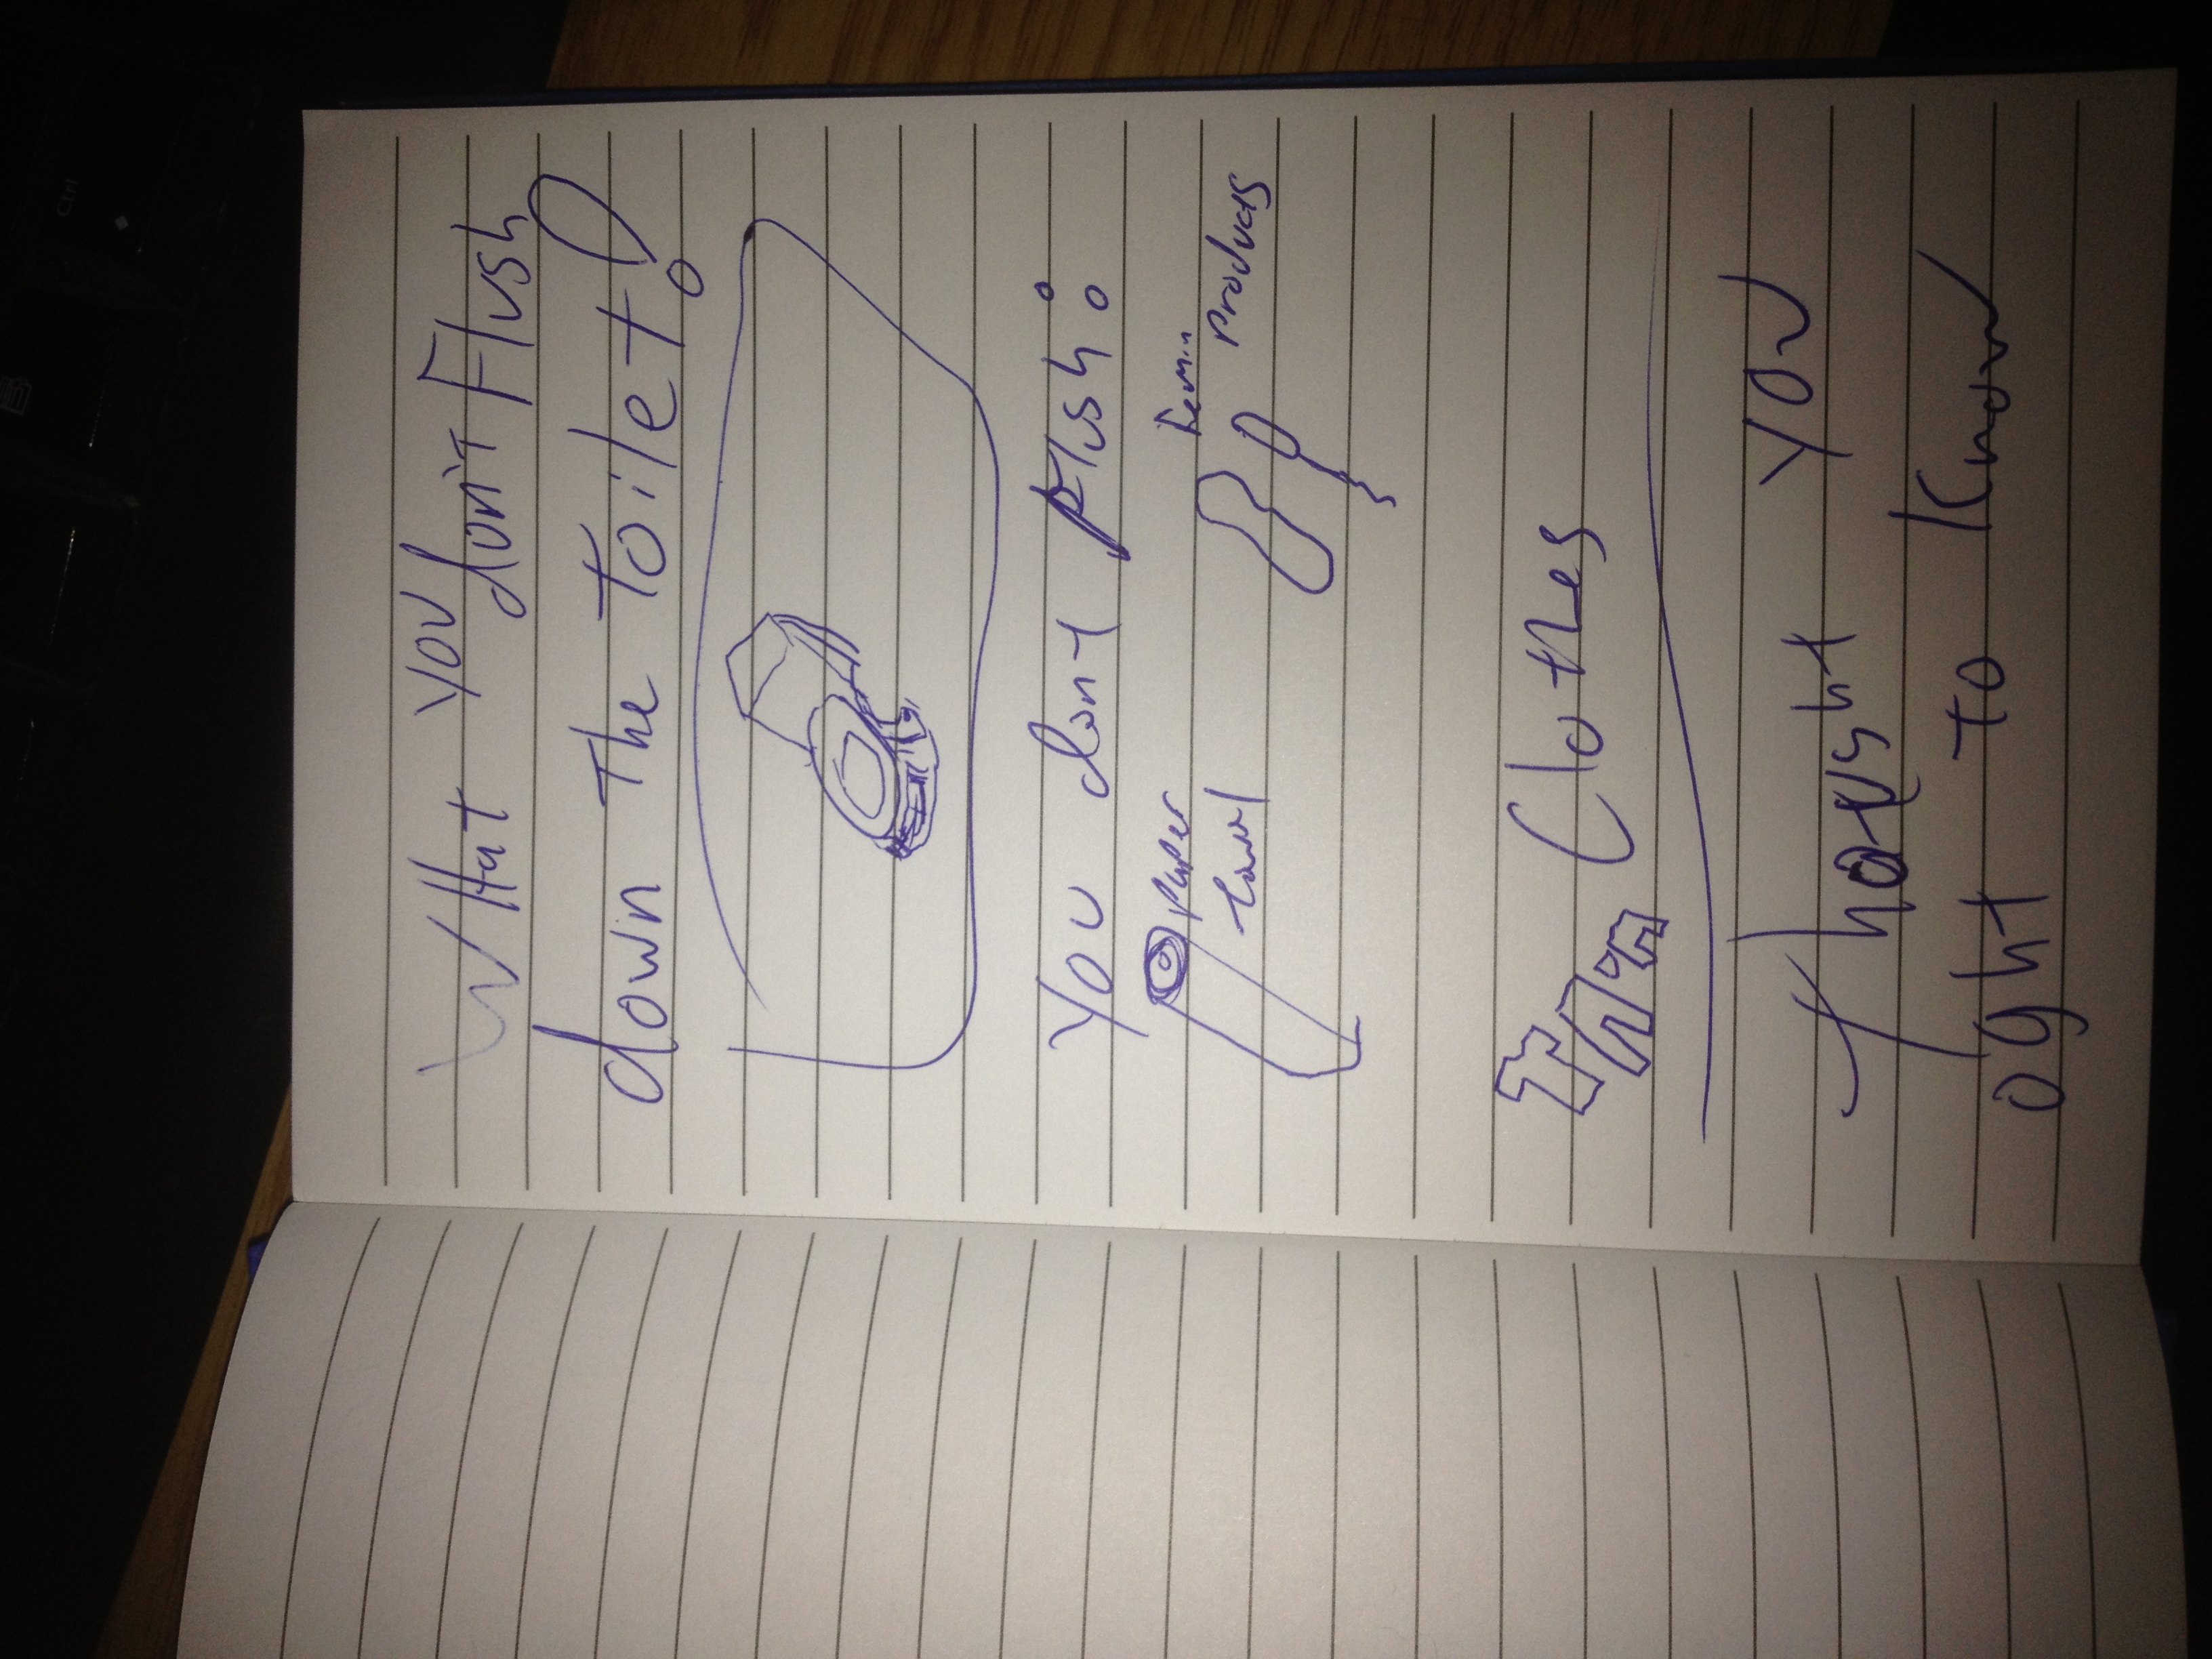 What you don't Flush
down The Toilet!
you dont Flush:
paper
towel
Femin
products
Clothes
Thought you
oght to know
Ctrl